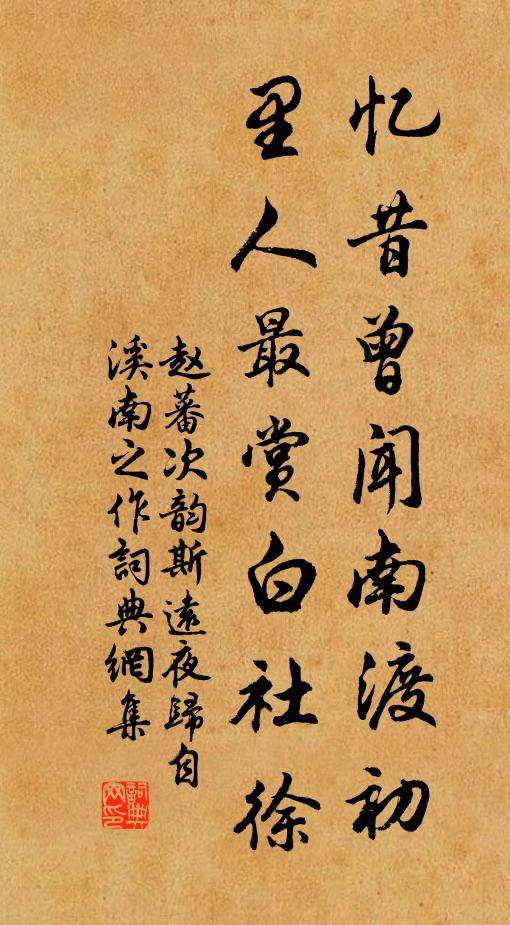 忆昔曾闻南渡初
里人最赏白社徐
赵蕃次韵斯远夜歸自
溪南之作詞典網集
詞典网印